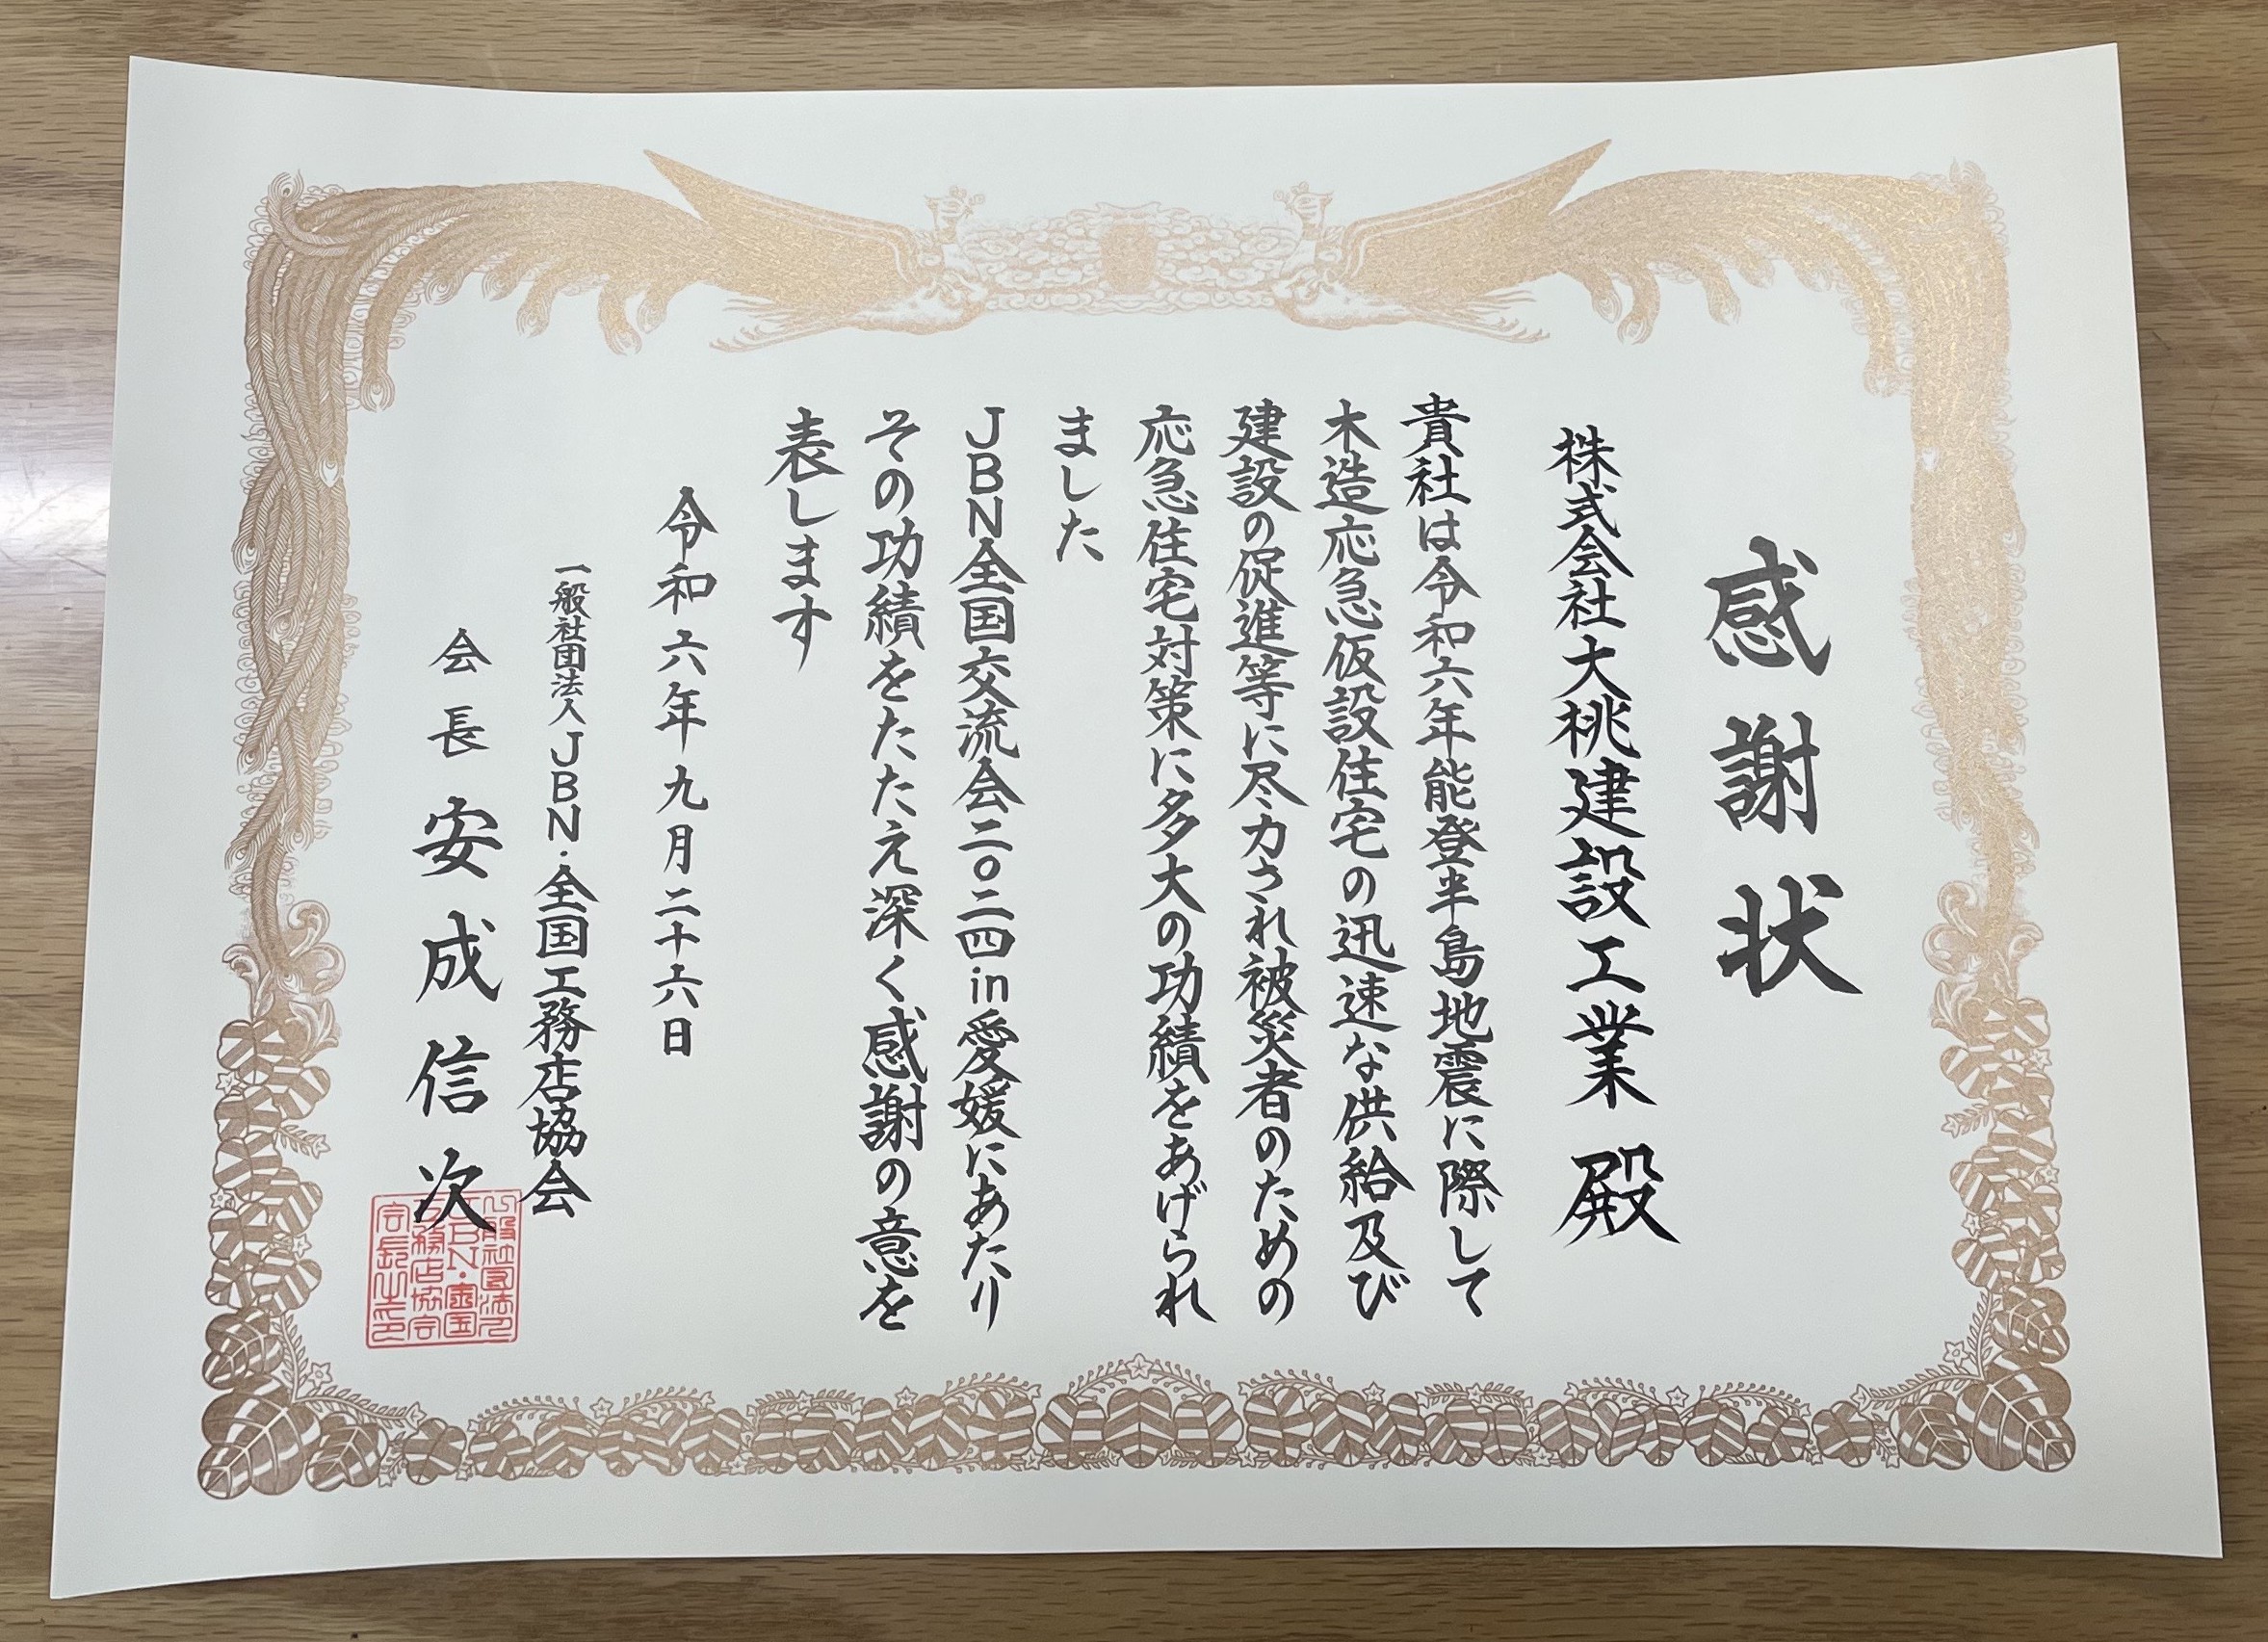 感謝状
株式会社大桃建設工業 殿
貴社は令和六年能登半島地震に際して
木造応急仮設住宅の迅速な供給及び
建設の促進等に尽力され被災者のための
応急住宅対策に多大の功績をあげられ
ました
JBN全国交流会二〇二四in愛媛にあたり
その功績をたたえ深く感謝の意を
表します
令和六年九月二十六日
一般社団法人JBN・全国工務店協会
会長 安成信次
一般社団法人
JBN・全国
工務店協会
会長之印